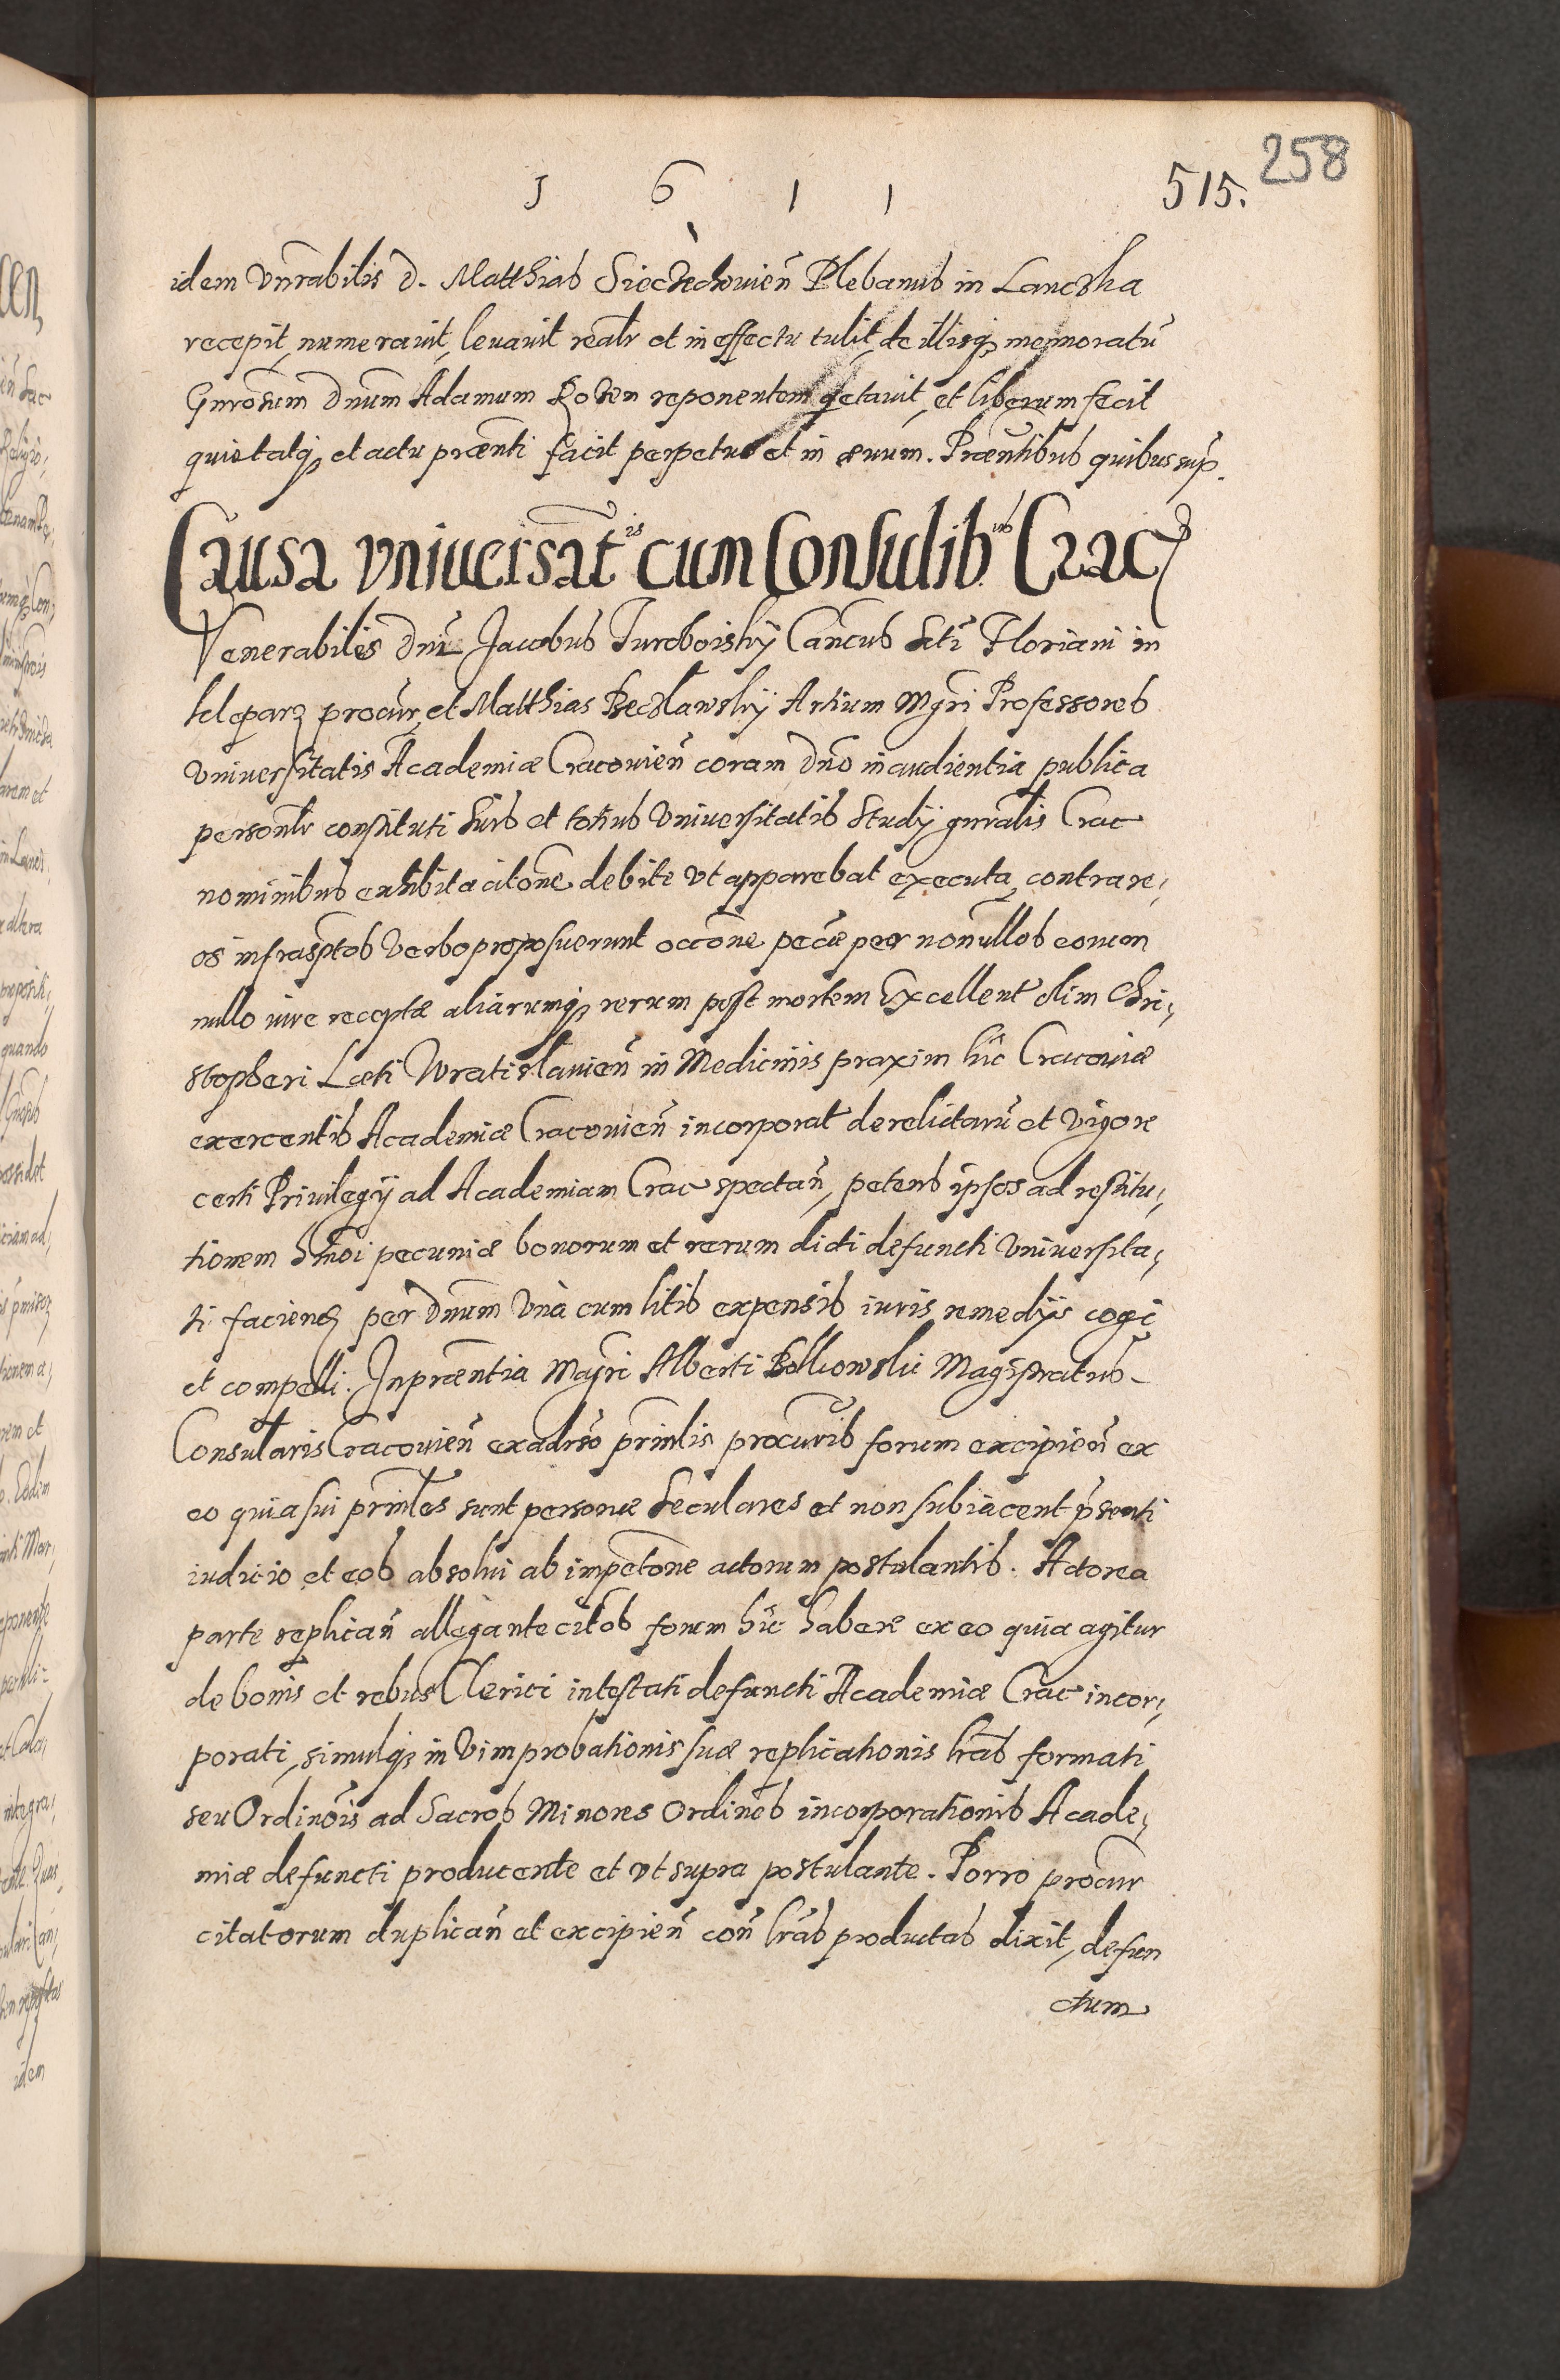 258
1 6 1 1 515.
idem Vnrabilis d. Matthias Siecziechouien̄ Plebanus in Lanczka
recepit, numerauit, leuauit realr et in effectu tulit, de illisq memoratū
Gnrosum dnum Adamum Rozen reponentem qetauit, et liberum fecit
quietatq et actu praenti facit perpetuo et in aeuum. Praentibus quibus sup.
Causa vniuersāt^is cum Consulib^us Crac
Venerabiles dni Jacobus Turoboiskÿ Cancus Scti Floriani in
Kleparz procur, et Matthias Beczlawskÿ Artium Mgri Professores
Vniuersitatis Academiæ Cracouien̄ coram dno in audientia publica
personlr constituti suis et totius Vniuersitatis Studÿ gnralis Crac
nominibus exhibita citone debite vt apparebat executa, contra re,
os infrasptos verbo proposuerunt occone pecæ per nonullos eorum
nullo iure receptæ aliarumq rerum post mortem Excellent olim Chri,
stopheri Læti Wratislauien̄ in Medicinis praxim hic Cracouiæ
exercentis Academiæ Cracouien̄ incorporat derelictarū et vigore
certi Priuilegÿ ad Academiam Crac spectan̄, petens ipsos ad restitu,
tionem hmoi pecuniæ bonorum et rerum dicti defuncti Vniuersita,
ti faciend per dnum vnà cum litis expensis iuris remedÿs cogi
et compelli. In praentia Mgri Alberti Bolkowskii Magistratus
Consularis Cracouien̄ ex adrso prinlis procuris forum excipien̄ ex
eo quia sui prinles sunt personæ seculares et non subiacent pr̄senti
iudicio et eos absolui ab impetone actorum postulantis. Actorea
parte replican̄ allegante citos forum hic habere ex eo quia agitur
de bonis et rebus Clerici intestati defuncti Academiæ Crac incor,
porati, simulq in vim probationis suæ replicationis lras formati
seu Ordinois ad Sacros Minores Ordines incorporationis Acade,
miæ defuncti producente et vt supra postulante. Porro procur
citatorum duplican̄ et excipien̄ con̄ lras productas dixit, defun
ctum